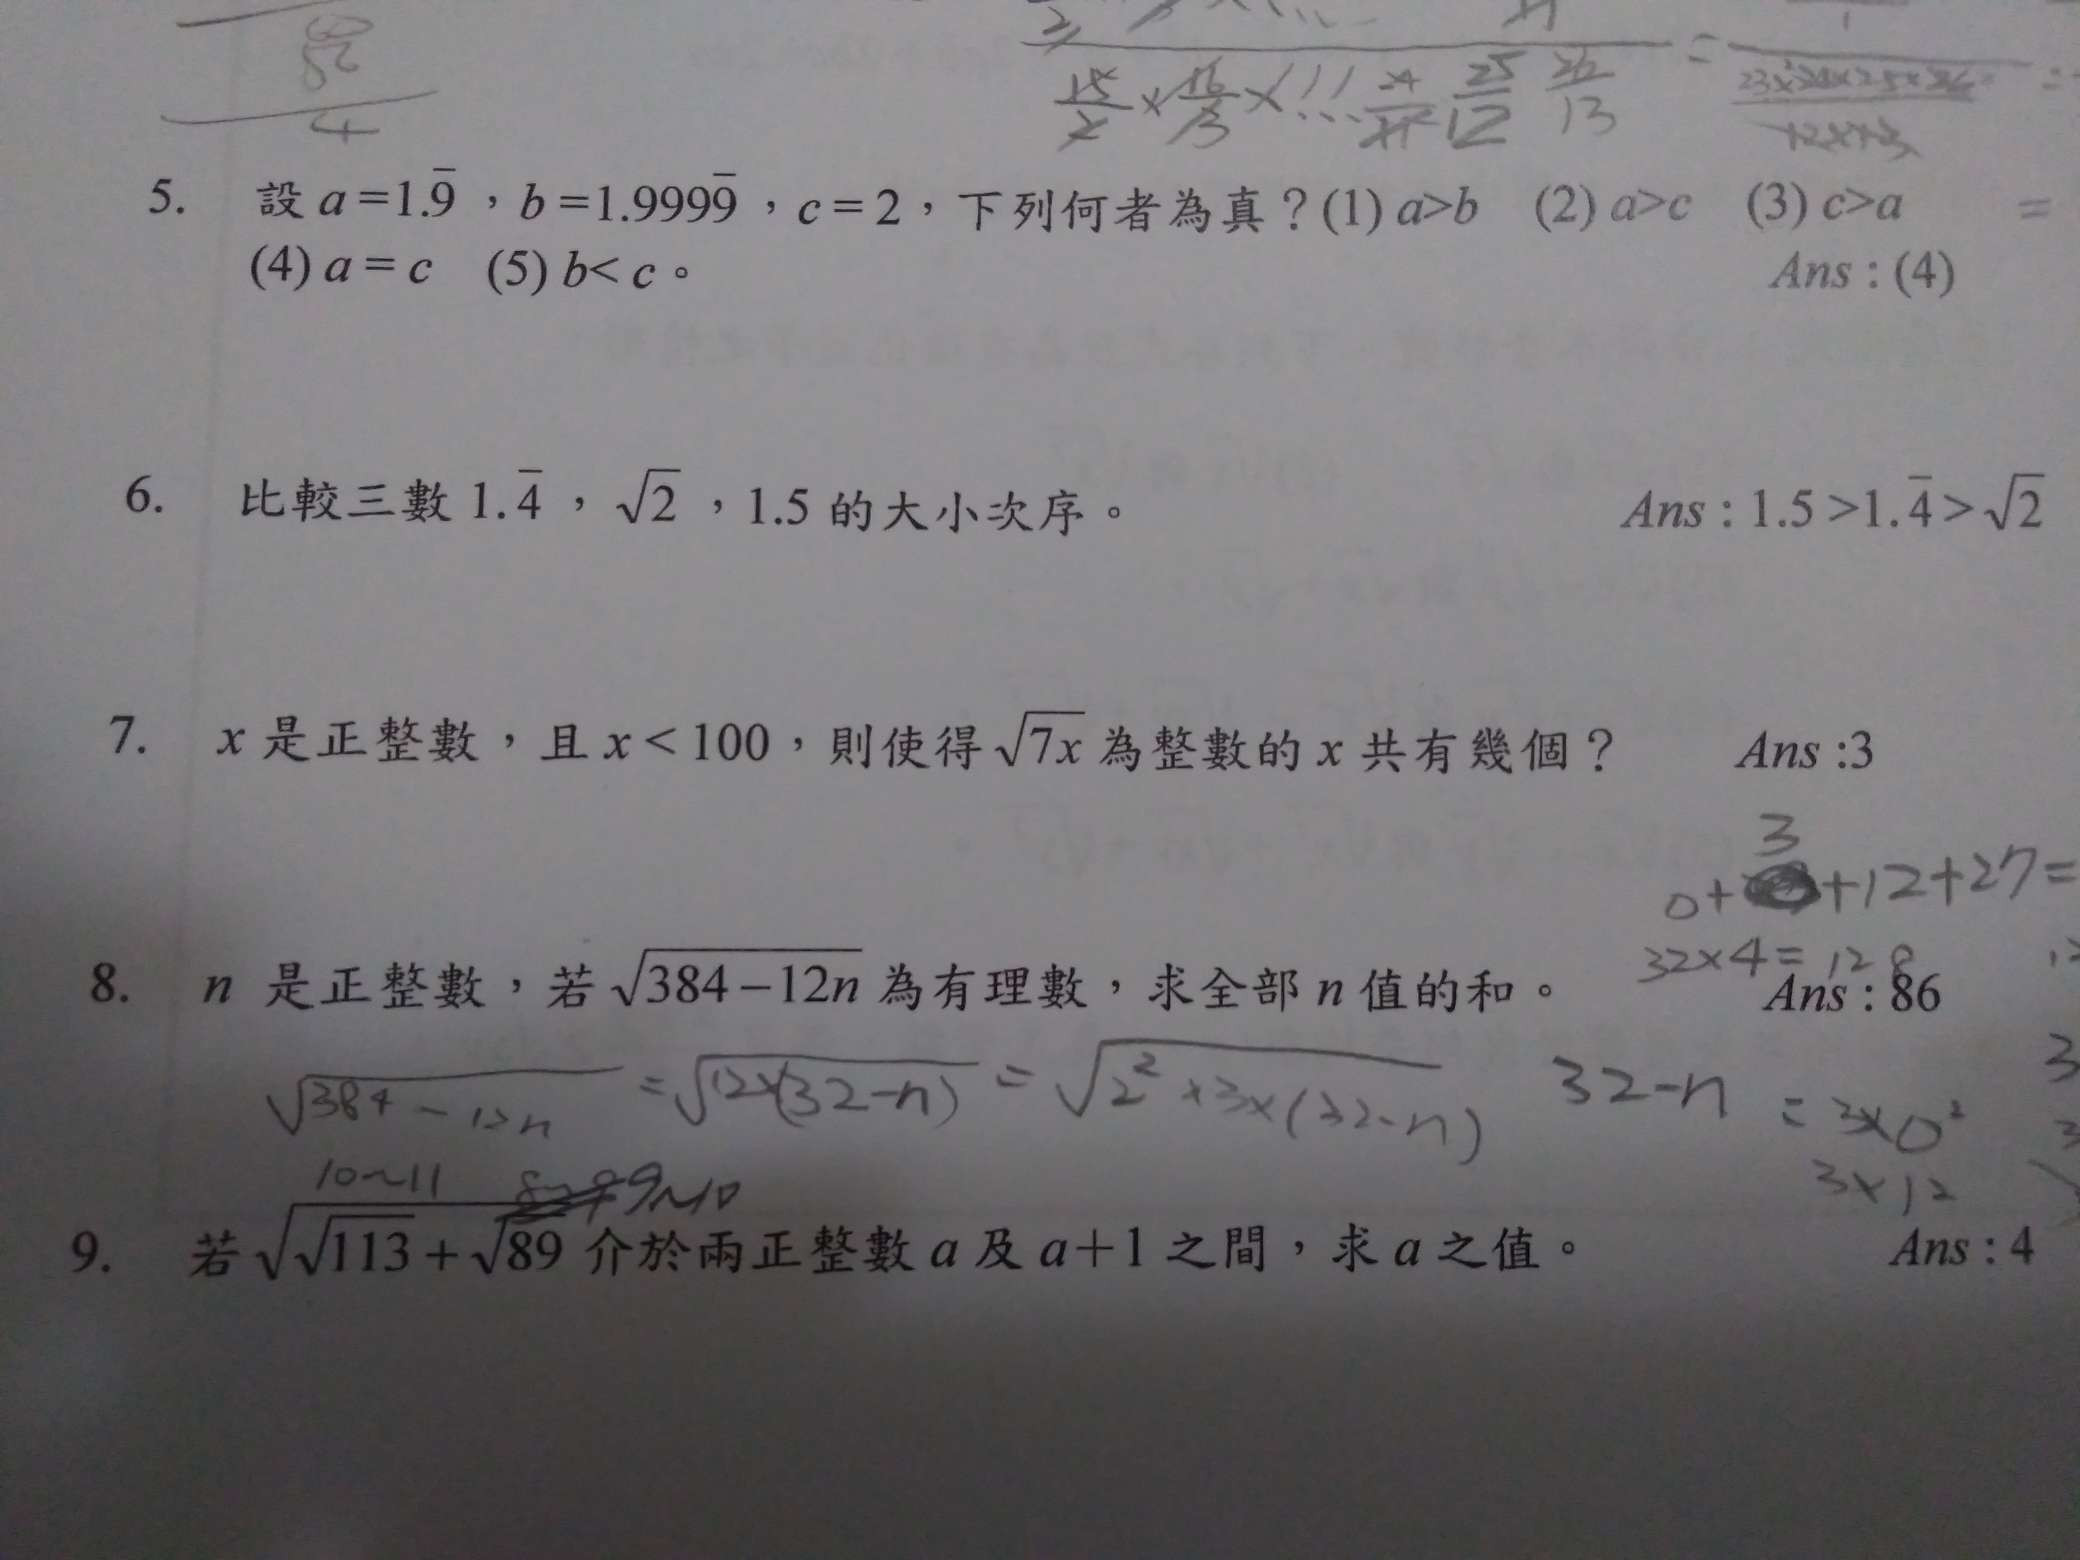 15/2 × 16/3 × ... 24/11 25/12 26/13
4
5. 設 a=1.9̅，b=1.9999̅，c=2，下列何者為真？(1) a>b (2) a>c (3) c>a
(4) a=c (5) b<c。 Ans：(4)
6. 比較三數 1.4̅，√2，1.5 的大小次序。 Ans：1.5>1.4̅>√2
7. x 是正整數，且 x<100，則使得 √(7x) 為整數的 x 共有幾個？ Ans：3
3
0+ +12+27=
32×4=128
8. n 是正整數，若 √(384−12n) 為有理數，求全部 n 值的和。 Ans：86
√(384−12n) = √(12×(32−n)) = √(2²×3×(32−n)) 32−n = 3×0²
3×12
10~11 9~10
9. 若 √(√113+√89) 介於兩正整數 a 及 a+1 之間，求 a 之值。 Ans：4